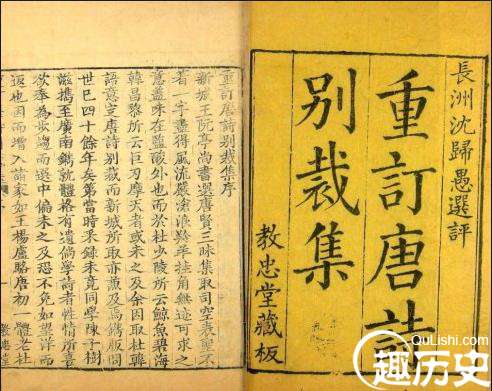 長洲沈歸愚選評
重訂唐詩
別裁集
教忠堂藏板
重訂唐詩別裁集序
新城王阮亭尚書選唐賢三昧集取司空表聖不
著一字盡得風流嚴滄浪羚羊挂角無迹可求之
意蓋味在鹽酸外也而於杜少陵所云鯨魚碧海
韓昌黎所云巨刃摩天者或未之及余因取杜韓
語意定唐詩別裁而新城所取亦兼及焉鐫版問
世已四十餘年矣第當時采錄未竟同學陳子樹
滋攜至廣南鐫就體格有遺倘學詩者性情所喜
欲奉為步趨而選中偏未之及恐不免如望洋而
返也因而增入諸家如王楊盧駱唐初一體老杜
教忠堂
QuLishi.com
趣历史